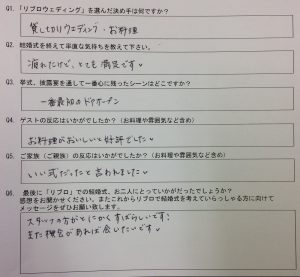 Q1. 「リブロウェディング」を選んだ決め手は何ですか?
貸し切りウェディング・お料理
Q2. 結婚式を終えて率直な気持ちを教えて下さい。
疲れたけど、とても満足です♡
Q3. 挙式、披露宴を通して一番心に残ったシーンはどこですか?
一番最初のドアオープン
Q4. ゲストの反応はいかがでしたか?（お料理や雰囲気など含め）
お料理がおいしいと好評でした♡
Q5. ご家族（ご親族）の反応はいかがでしたか?（お料理や雰囲気など含め）
いい式だったと言われました♡
Q6. 最後に「リブロ」での結婚式、お二人にとっていかがだったでしょうか?
感想をお聞かせください。またこれからリブロで結婚式を考えていらっしゃる方に向けて
メッセージをぜひお願い致します。
スタッフの方がとにかくすばらしいです!
また機会があれば会いたいです♡